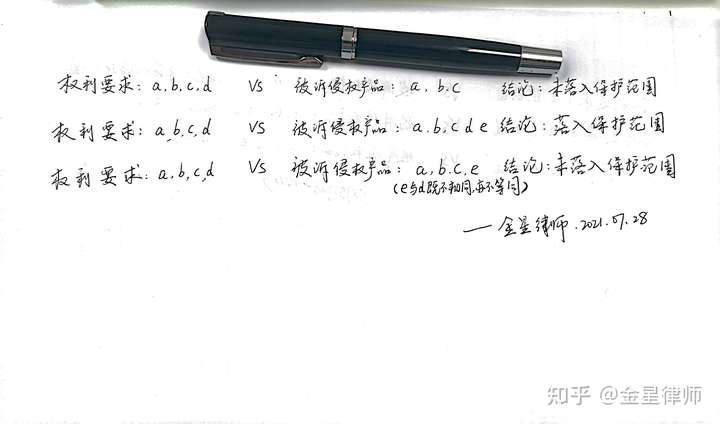 权利要求：a,b,c,d VS 被诉侵权产品：a,b.c 结论：未落入保护范围
权利要求：a,b,c,d VS 被诉侵权产品：a.b,c d e 结论：落入保护范围
权利要求：a,b,c,d VS 被诉侵权产品：a,b.c,e 结论：未落入保护范围
（e与d既不相同,亦不等同）
— 金星律师.2021.07.28
知乎 @金星律师